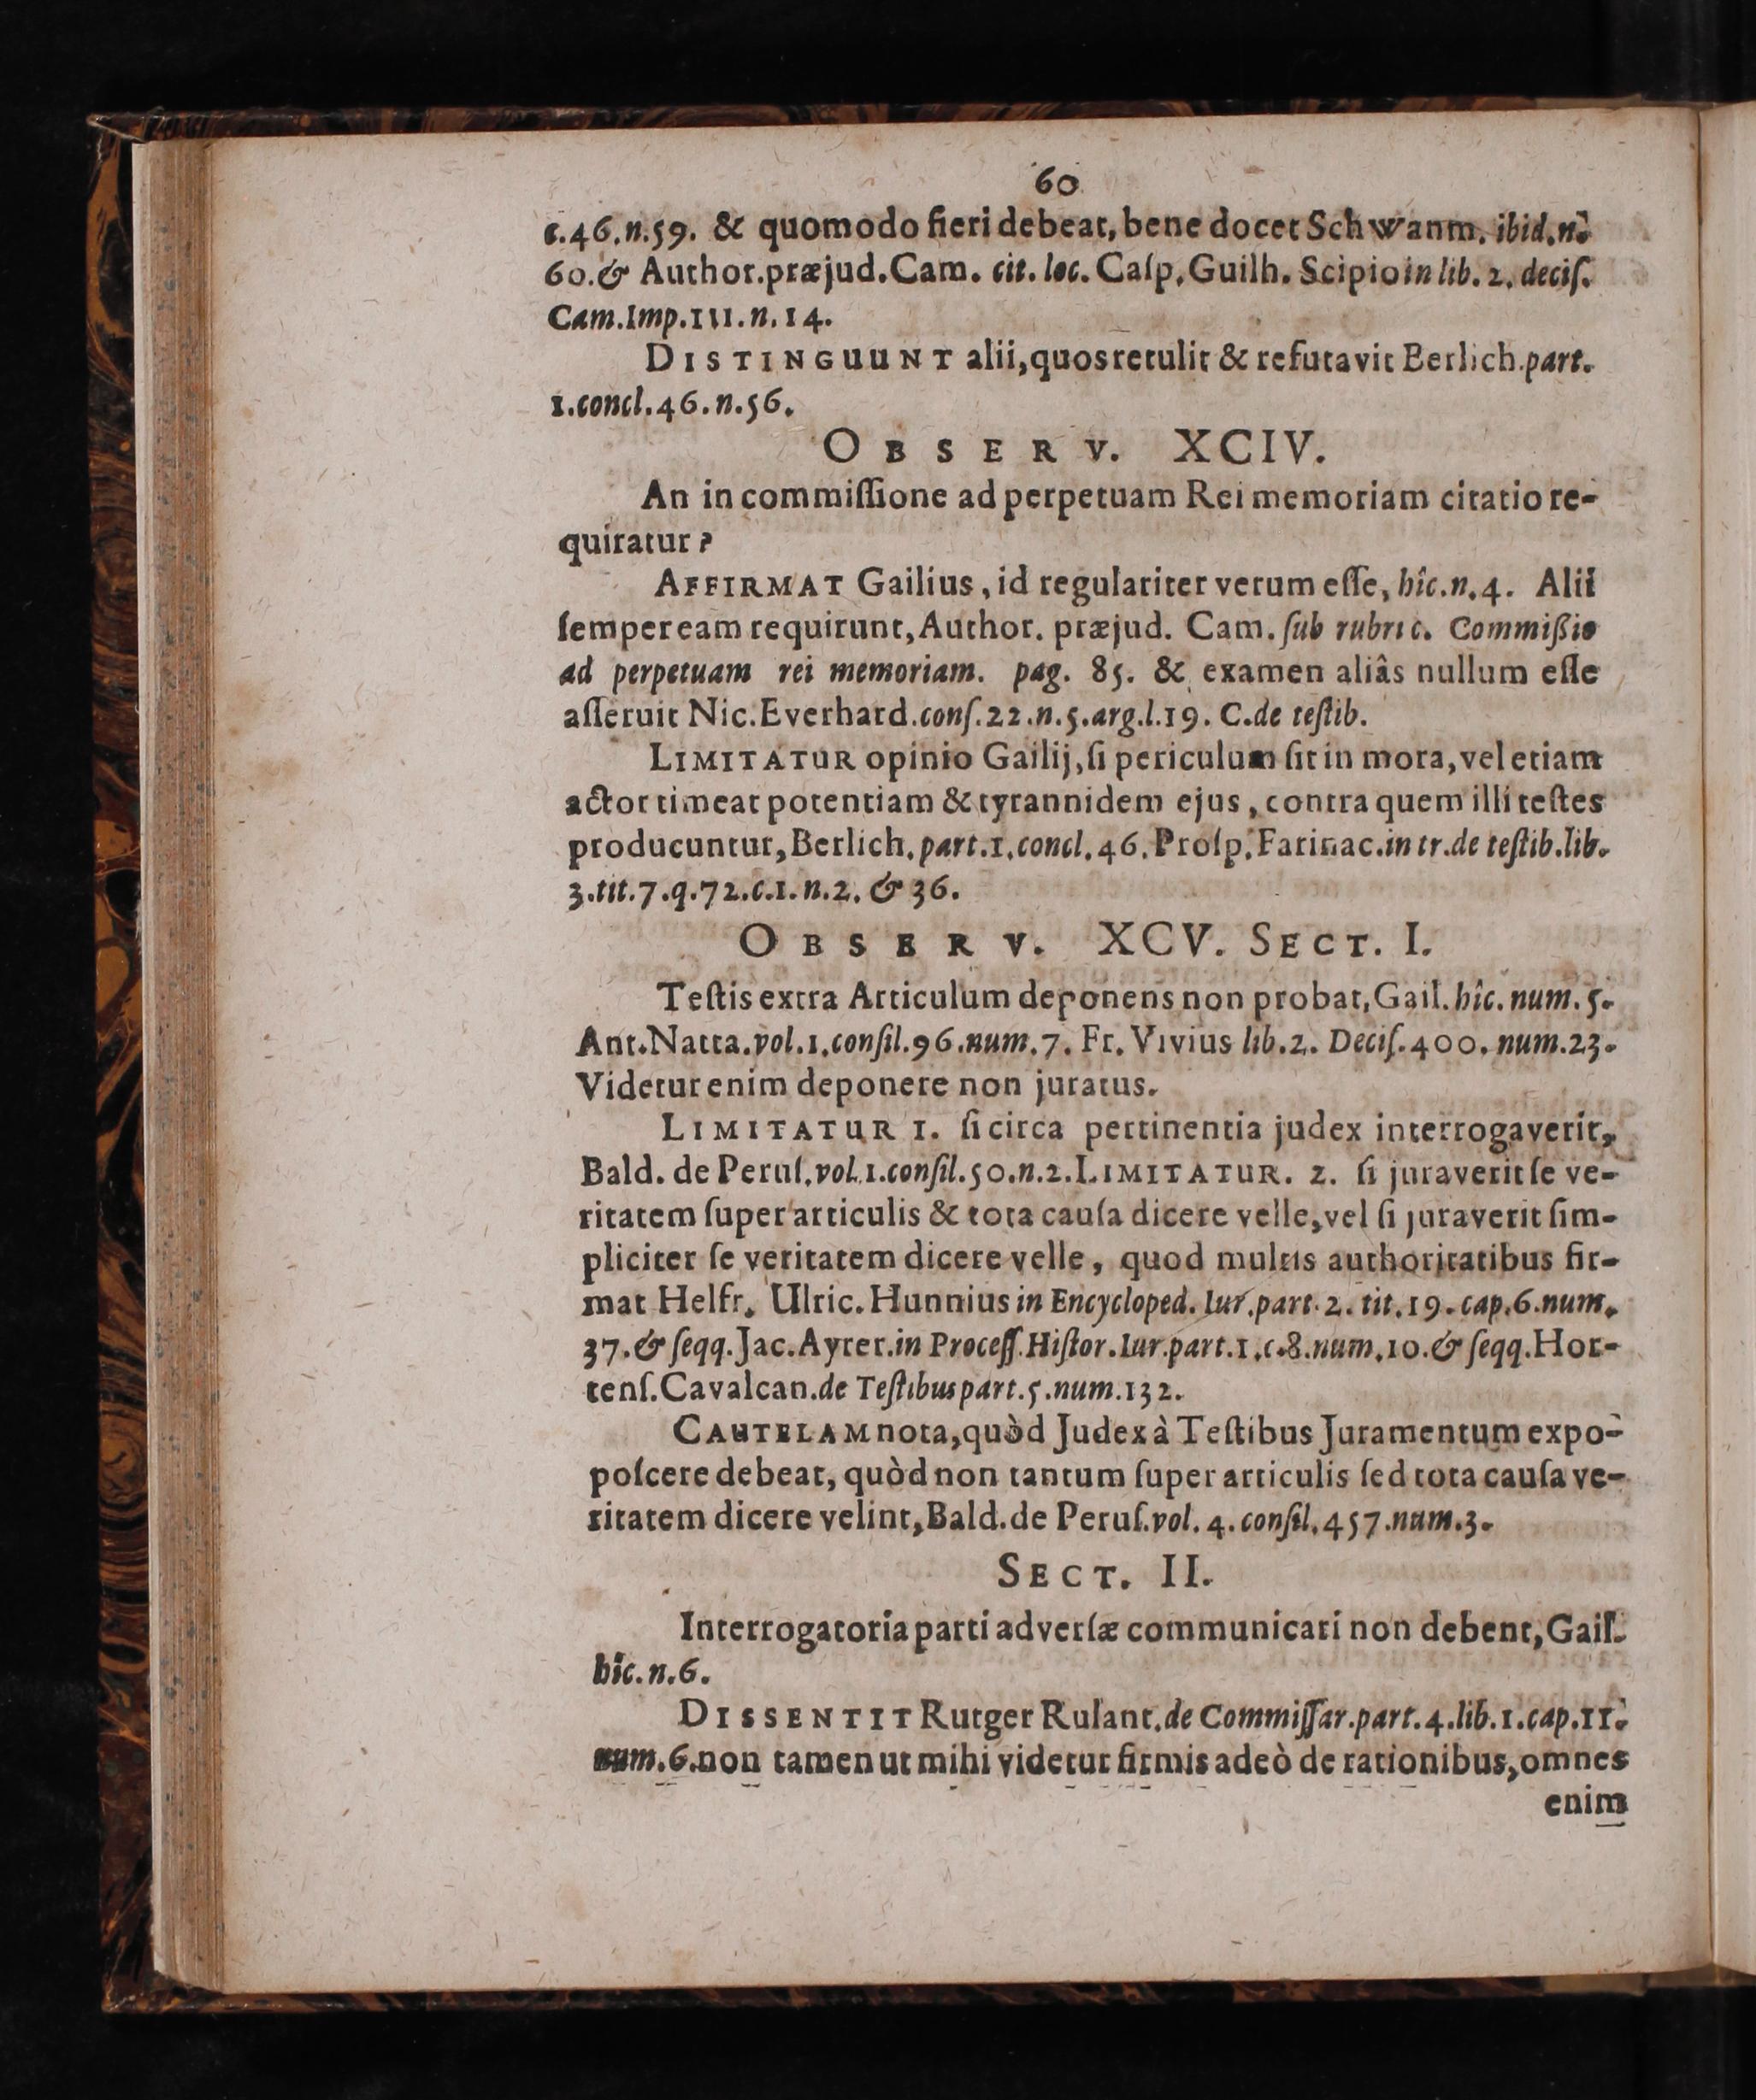 60
c.46.n.59. & quomodo fieri debeat, bene docet Schwanm. ibid. n.
60. & Author. præjud. Cam. cit. loc. Caſp. Guilh. Scipio in lib. 2. deciſ.
Cam. Imp. 111. n. 14.
DISTINGUUNT alii, quos retulit & refutavit Berlich. part.
1. concl. 46. n. 56.
OBSERV. XCIV.
An in commiſſione ad perpetuam Rei memoriam citatio re-
quiratur?
AFFIRMAT Gailius, id regulariter verum eſſe, hîc. n. 4. Alii
ſemper eam requirunt, Author. præjud. Cam. ſub rubric. Commiſſio
ad perpetuam rei memoriam. pag. 85. & examen aliâs nullum eſſe
aſſeruit Nic. Everhard. conſ. 22. n. 5. arg. l. 19. C. de teſtib.
LIMITATUR opinio Gailij, ſi periculum ſit in mora, vel etiam
actor timeat potentiam & tyrannidem ejus, contra quem illi teſtes
producuntur, Berlich. part. 1. concl. 46. Proſp. Farinac. in tr. de teſtib. lib.
3. tit. 7. q. 72. c. 1. n. 2. & 36.
OBSERV. XCV. SECT. I.
Teſtis extra Articulum deponens non probat, Gail. hîc. num. 5.
Ant. Natta. vol. 1. conſil. 96. num. 7. Fr. Vivius lib. 2. Deciſ. 400. num. 23.
Videtur enim deponere non juratus.
LIMITATUR 1. ſi circa pertinentia judex interrogaverit,
Bald. de Peruſ. vol. 1. conſil. 50. n. 2. LIMITATUR. 2. ſi juraverit ſe ve-
ritatem ſuper articulis & tota cauſa dicere velle, vel ſi juraverit ſim-
pliciter ſe veritatem dicere velle, quod multis authoritatibus fir-
mat Helfr. Ulric. Hunnius in Encycloped. Iur. part. 2. tit. 19. cap. 6. num.
37. & ſeqq. Jac. Ayrer. in Proceſſ. Hiſtor. Iur. part. 1. c. 8. num. 10. & ſeqq. Hor-
tenſ. Cavalcan. de Teſtibus part. 5. num. 132.
CAUTELAM nota, quòd Judex à Teſtibus Juramentum expo-
poſcere debeat, quòd non tantum ſuper articulis ſed tota cauſa ve-
ritatem dicere velint, Bald. de Peruſ. vol. 4. conſil. 457. num. 3.
SECT. II.
Interrogatoria parti adverſæ communicari non debent, Gail.
hîc. n. 6.
DISSENTIT Rutger Rulant. de Commiſſar. part. 4. lib. 1. cap. 11.
num. 6. non tamen ut mihi videtur firmis adeò de rationibus, omnes
enim